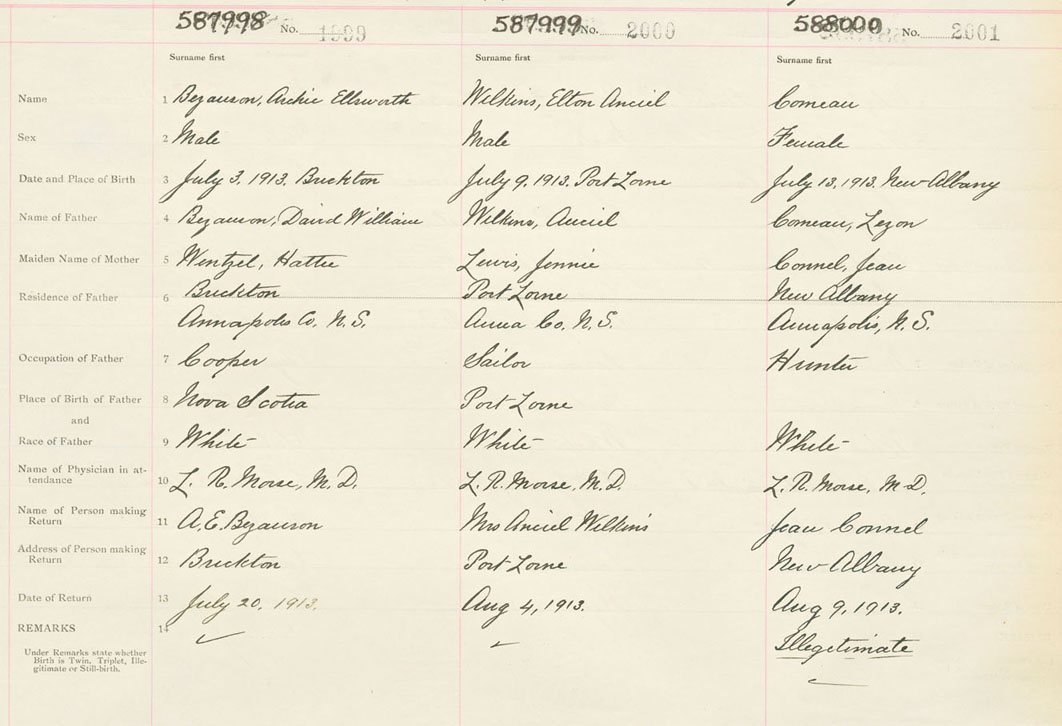 587998 No. 1999 587999 No. 2000 588000 No. 2001
Surname first Surname first Surname first
Name 1 Bezanson, Archie Ellsworth Wilkins, Elton Anciel Comeau
Sex 2 Male Male Female
Date and Place of Birth 3 July 3. 1913. Buckton July 9, 1913. Port Lorne July 13, 1913. New Albany
Name of Father 4 Bezanson, David William Wilkins, Anciel Comeau, Lezon
Maiden Name of Mother 5 Wentzel, Hattie Lewis, Jennie Connel, Jean
Residence of Father 6 Buckton Port Lorne New Albany
Annapolis Co, N. S. Anna Co, N. S. Annapolis, N. S.
Occupation of Father 7 Cooper Sailor Hunter
Place of Birth of Father 8 Nova Scotia Port Lorne
and
Race of Father 9 White White White
Name of Physician in at-
tendance 10 L. R. Morse, M. D. L. R. Morse, M. D. L. R. Morse, M. D.
Name of Person making
Return 11 A. E. Bezanson Mrs Anciel Wilkins Jean Connel
Address of Person making
Return 12 Buckton Port Lorne New Albany
Date of Return 13 July 20, 1913. Aug 4, 1913. Aug 9, 1913.
REMARKS 14 Illegitimate
Under Remarks state whether
Birth is Twin, Triplet, Ille-
gitimate or Still-birth.